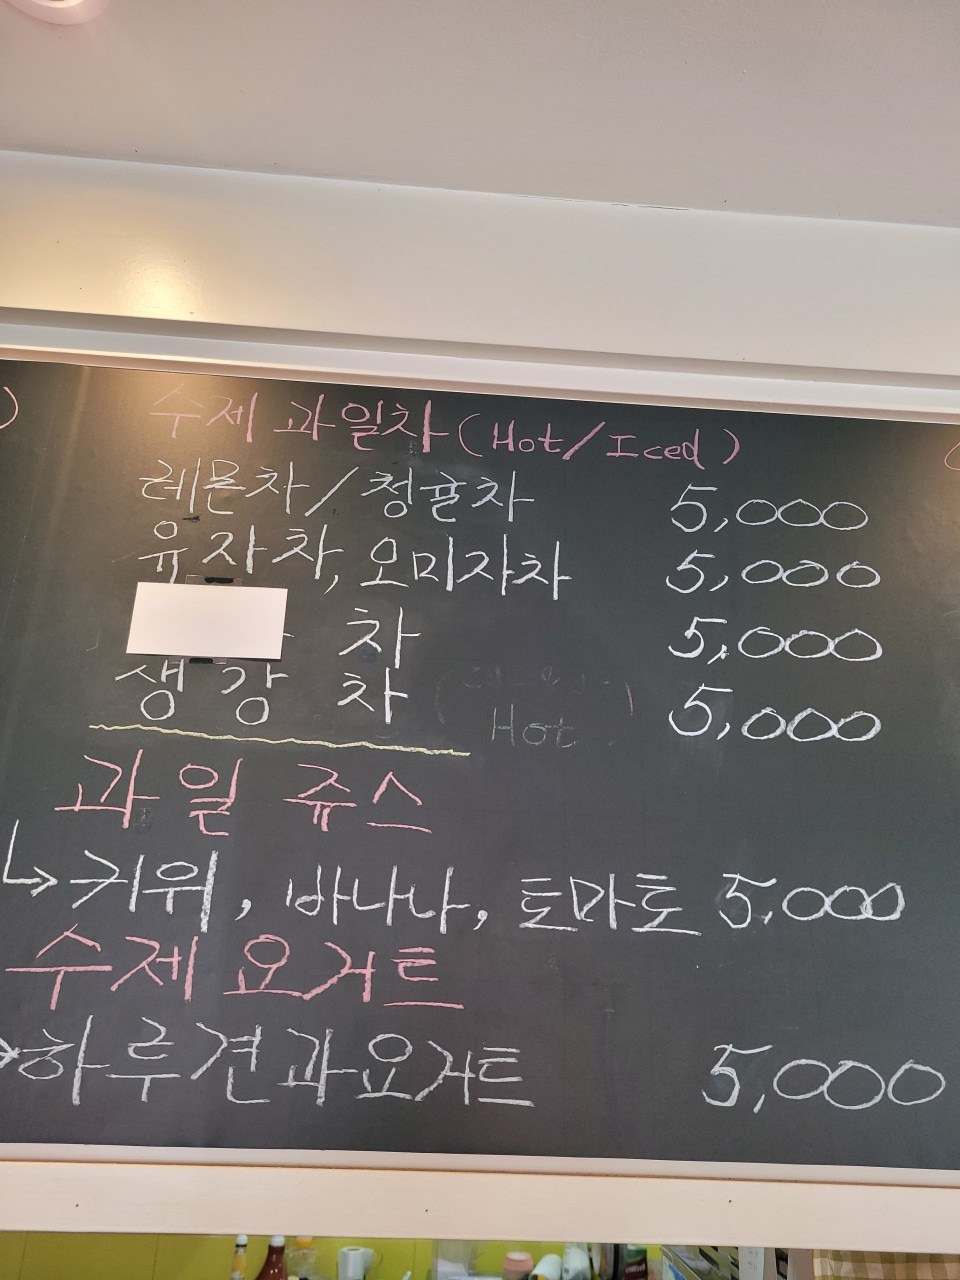 수제 과일차 (Hot/Iced)
레몬차/청귤차 5,000
유자차, 오미자차 5,000
차 5,000
생강차 (Hot) 5,000
과일 쥬스
↳ 키위, 바나나, 토마토 5,000
수제 요거트
→ 하루견과요거트 5,000